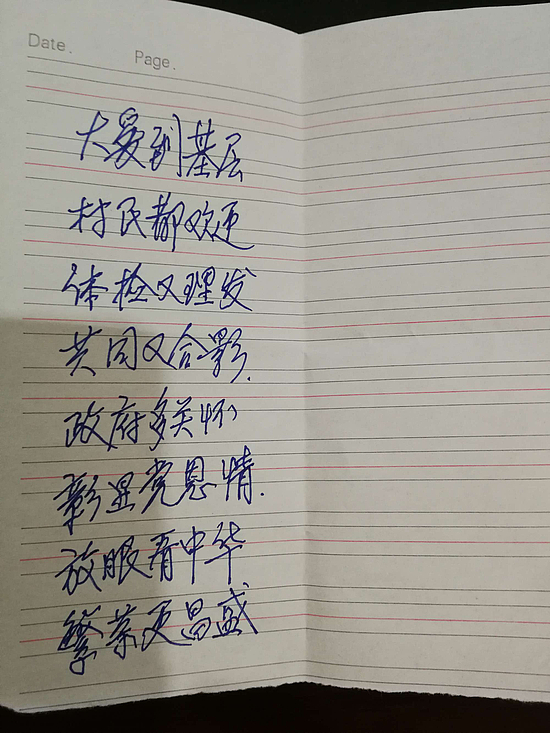 Date.
Page.
大爱到基层
村民都欢迎
体检又理发
共同又合影.
政府多关怀
彰显党恩情.
放眼看中华
繁荣更昌盛